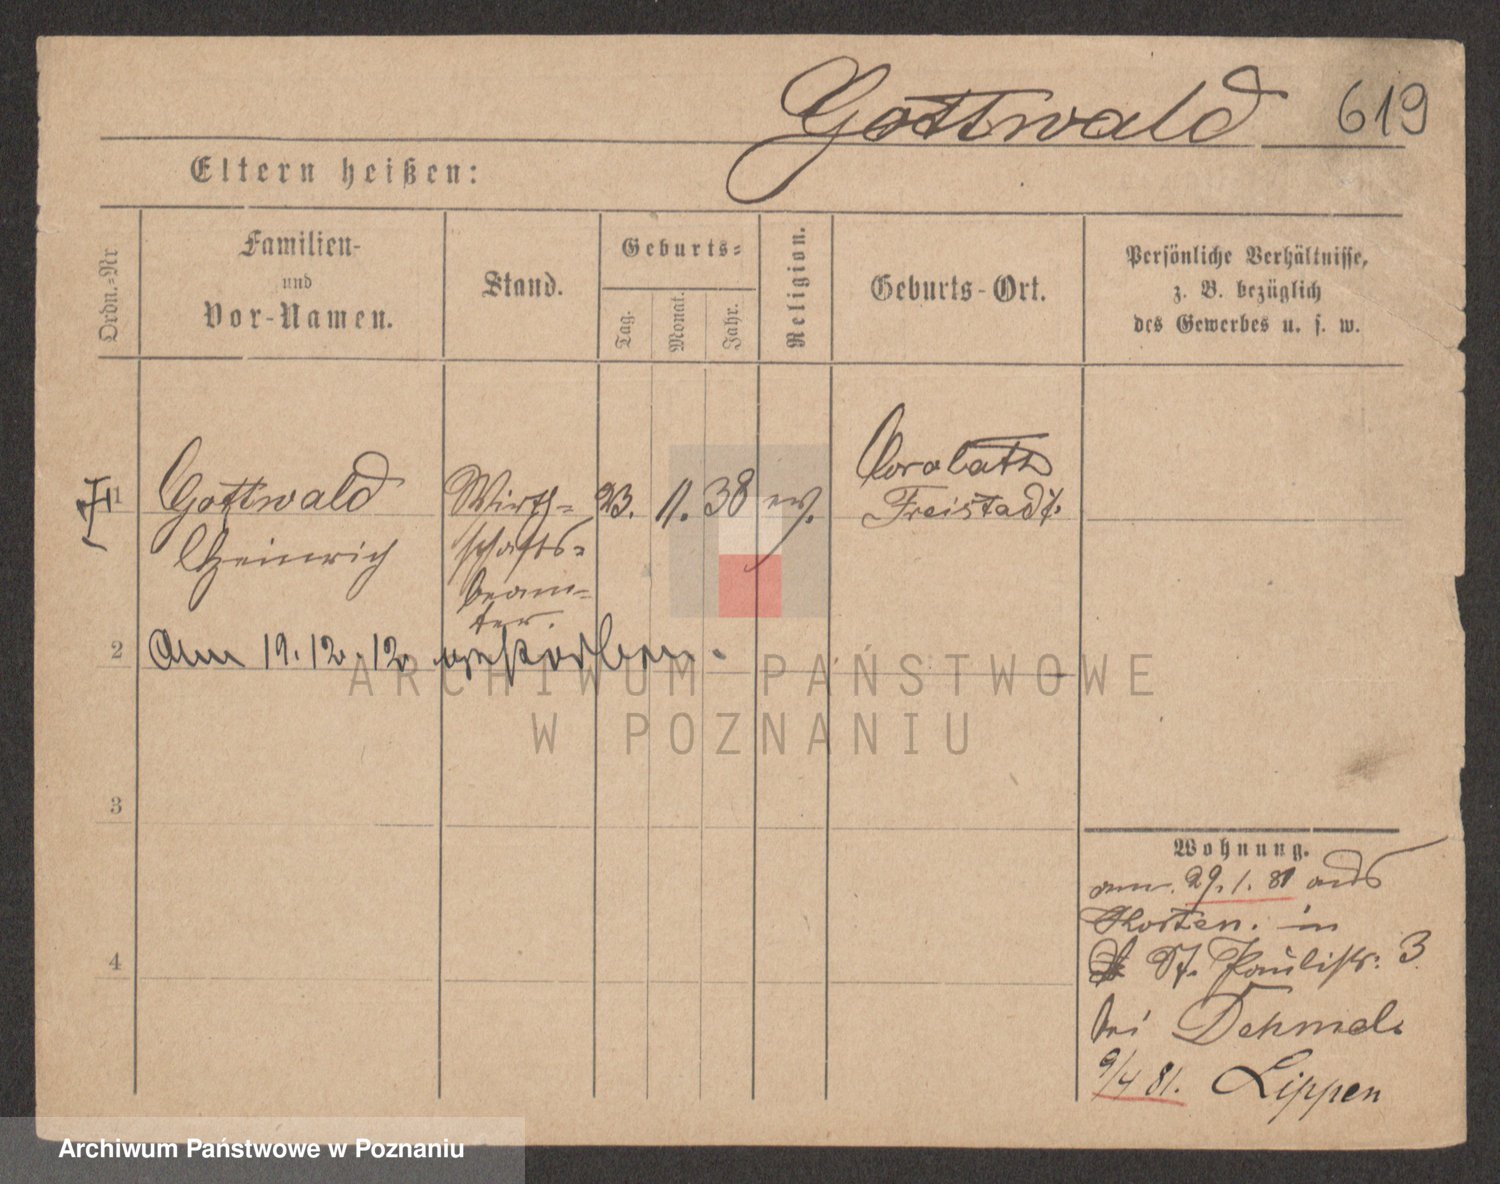 Gottwald 619
Eltern heißen:
Ordn.-Nr
Familien-
und
Vor-Namen.
Stand.
Geburts-
Tag.
Monat.
Jahr.
Religion.
Geburts-Ort.
Persönliche Verhältnisse,
z. B. bezüglich
des Gewerbes u. s. w.
1 Gottwald Wirth- 23. 11. 38 ev. Carolath
Heinrich schafts- Freistadt.
beam-
ter.
2 Am 19.12.12 verstorben.
3
4
Wohnung.
am 29.1.81 aus
Kosten. in
St. Paulistr: 3
bei Dehmel.
9/4 81. Lippen
ARCHIWUM PAŃSTWOWE
W POZNANIU
Archiwum Państwowe w Poznaniu